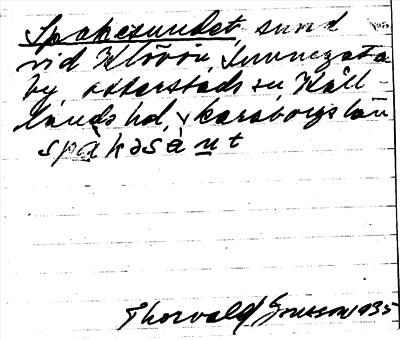 Spakesundet, sund
vid Klövön, Sunnegata
by, otterstads sn Kål-
lands hd, Skaraborgs län
spàkəsànt
Thorvald Jonsson 1935